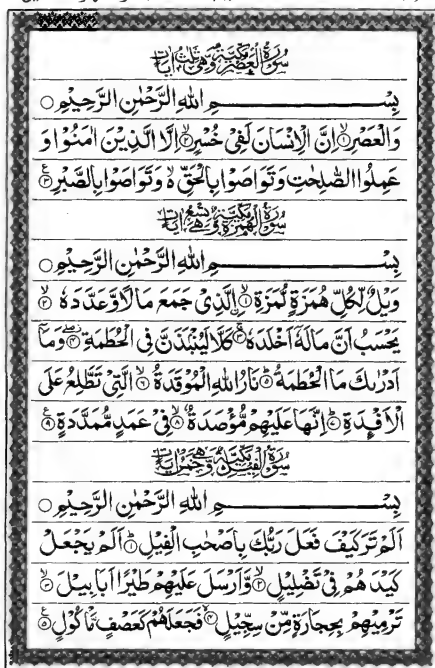 سُوْرَةُ الْعَصْرِ مَكِّيَّةٌ وَّهِيَ ثَلٰثُ اٰيَاتٍ
بِسْمِ اللهِ الرَّحْمٰنِ الرَّحِيْمِ ○
وَالْعَصْرِ ۙ﴿۱﴾ اِنَّ الْاِنْسَانَ لَفِيْ خُسْرٍ ۙ﴿۲﴾ اِلَّا الَّذِيْنَ اٰمَنُوْا وَ
عَمِلُوا الصّٰلِحٰتِ وَتَوَاصَوْا بِالْحَقِّ ۙ۬ وَتَوَاصَوْا بِالصَّبْرِ ﴿۳﴾ ع
سُوْرَةُ الْهُمَزَةِ مَكِّيَّةٌ وَّهِيَ تِسْعُ اٰيَاتٍ
بِسْمِ اللهِ الرَّحْمٰنِ الرَّحِيْمِ ○
وَيْلٌ لِّكُلِّ هُمَزَةٍ لُّمَزَةِ ۙ﴿۱﴾ ۨالَّذِيْ جَمَعَ مَالًا وَّعَدَّدَهٗ ۙ﴿۲﴾
يَحْسَبُ اَنَّ مَالَهٗۤ اَخْلَدَهٗ ۚ﴿۳﴾ كَلَّا لَيُنْۢبَذَنَّ فِي الْحُطَمَةِ ۖ﴿۴﴾ وَمَاۤ
اَدْرٰىكَ مَا الْحُطَمَةُ ؕ﴿۵﴾ نَارُ اللهِ الْمُوْقَدَةُ ۙ﴿۶﴾ الَّتِيْ تَطَّلِعُ عَلَى
الْاَفْـِٕدَةِ ؕ﴿۷﴾ اِنَّهَا عَلَيْهِمْ مُّؤْصَدَةٌ ۙ﴿۸﴾ فِيْ عَمَدٍ مُّمَدَّدَةٍ ﴿۹﴾ ع
سُوْرَةُ الْفِيْلِ مَكِّيَّةٌ وَّهِيَ خَمْسُ اٰيَاتٍ
بِسْمِ اللهِ الرَّحْمٰنِ الرَّحِيْمِ ○
اَلَمْ تَرَ كَيْفَ فَعَلَ رَبُّكَ بِاَصْحٰبِ الْفِيْلِ ؕ﴿۱﴾ اَلَمْ يَجْعَلْ
كَيْدَهُمْ فِيْ تَضْلِيْلٍ ۙ﴿۲﴾ وَّاَرْسَلَ عَلَيْهِمْ طَيْرًا اَبَابِيْلَ ۙ﴿۳﴾
تَرْمِيْهِمْ بِحِجَارَةٍ مِّنْ سِجِّيْلٍ ۙ﴿۴﴾ فَجَعَلَهُمْ كَعَصْفٍ مَّاْكُوْلٍ ﴿۵﴾ ع